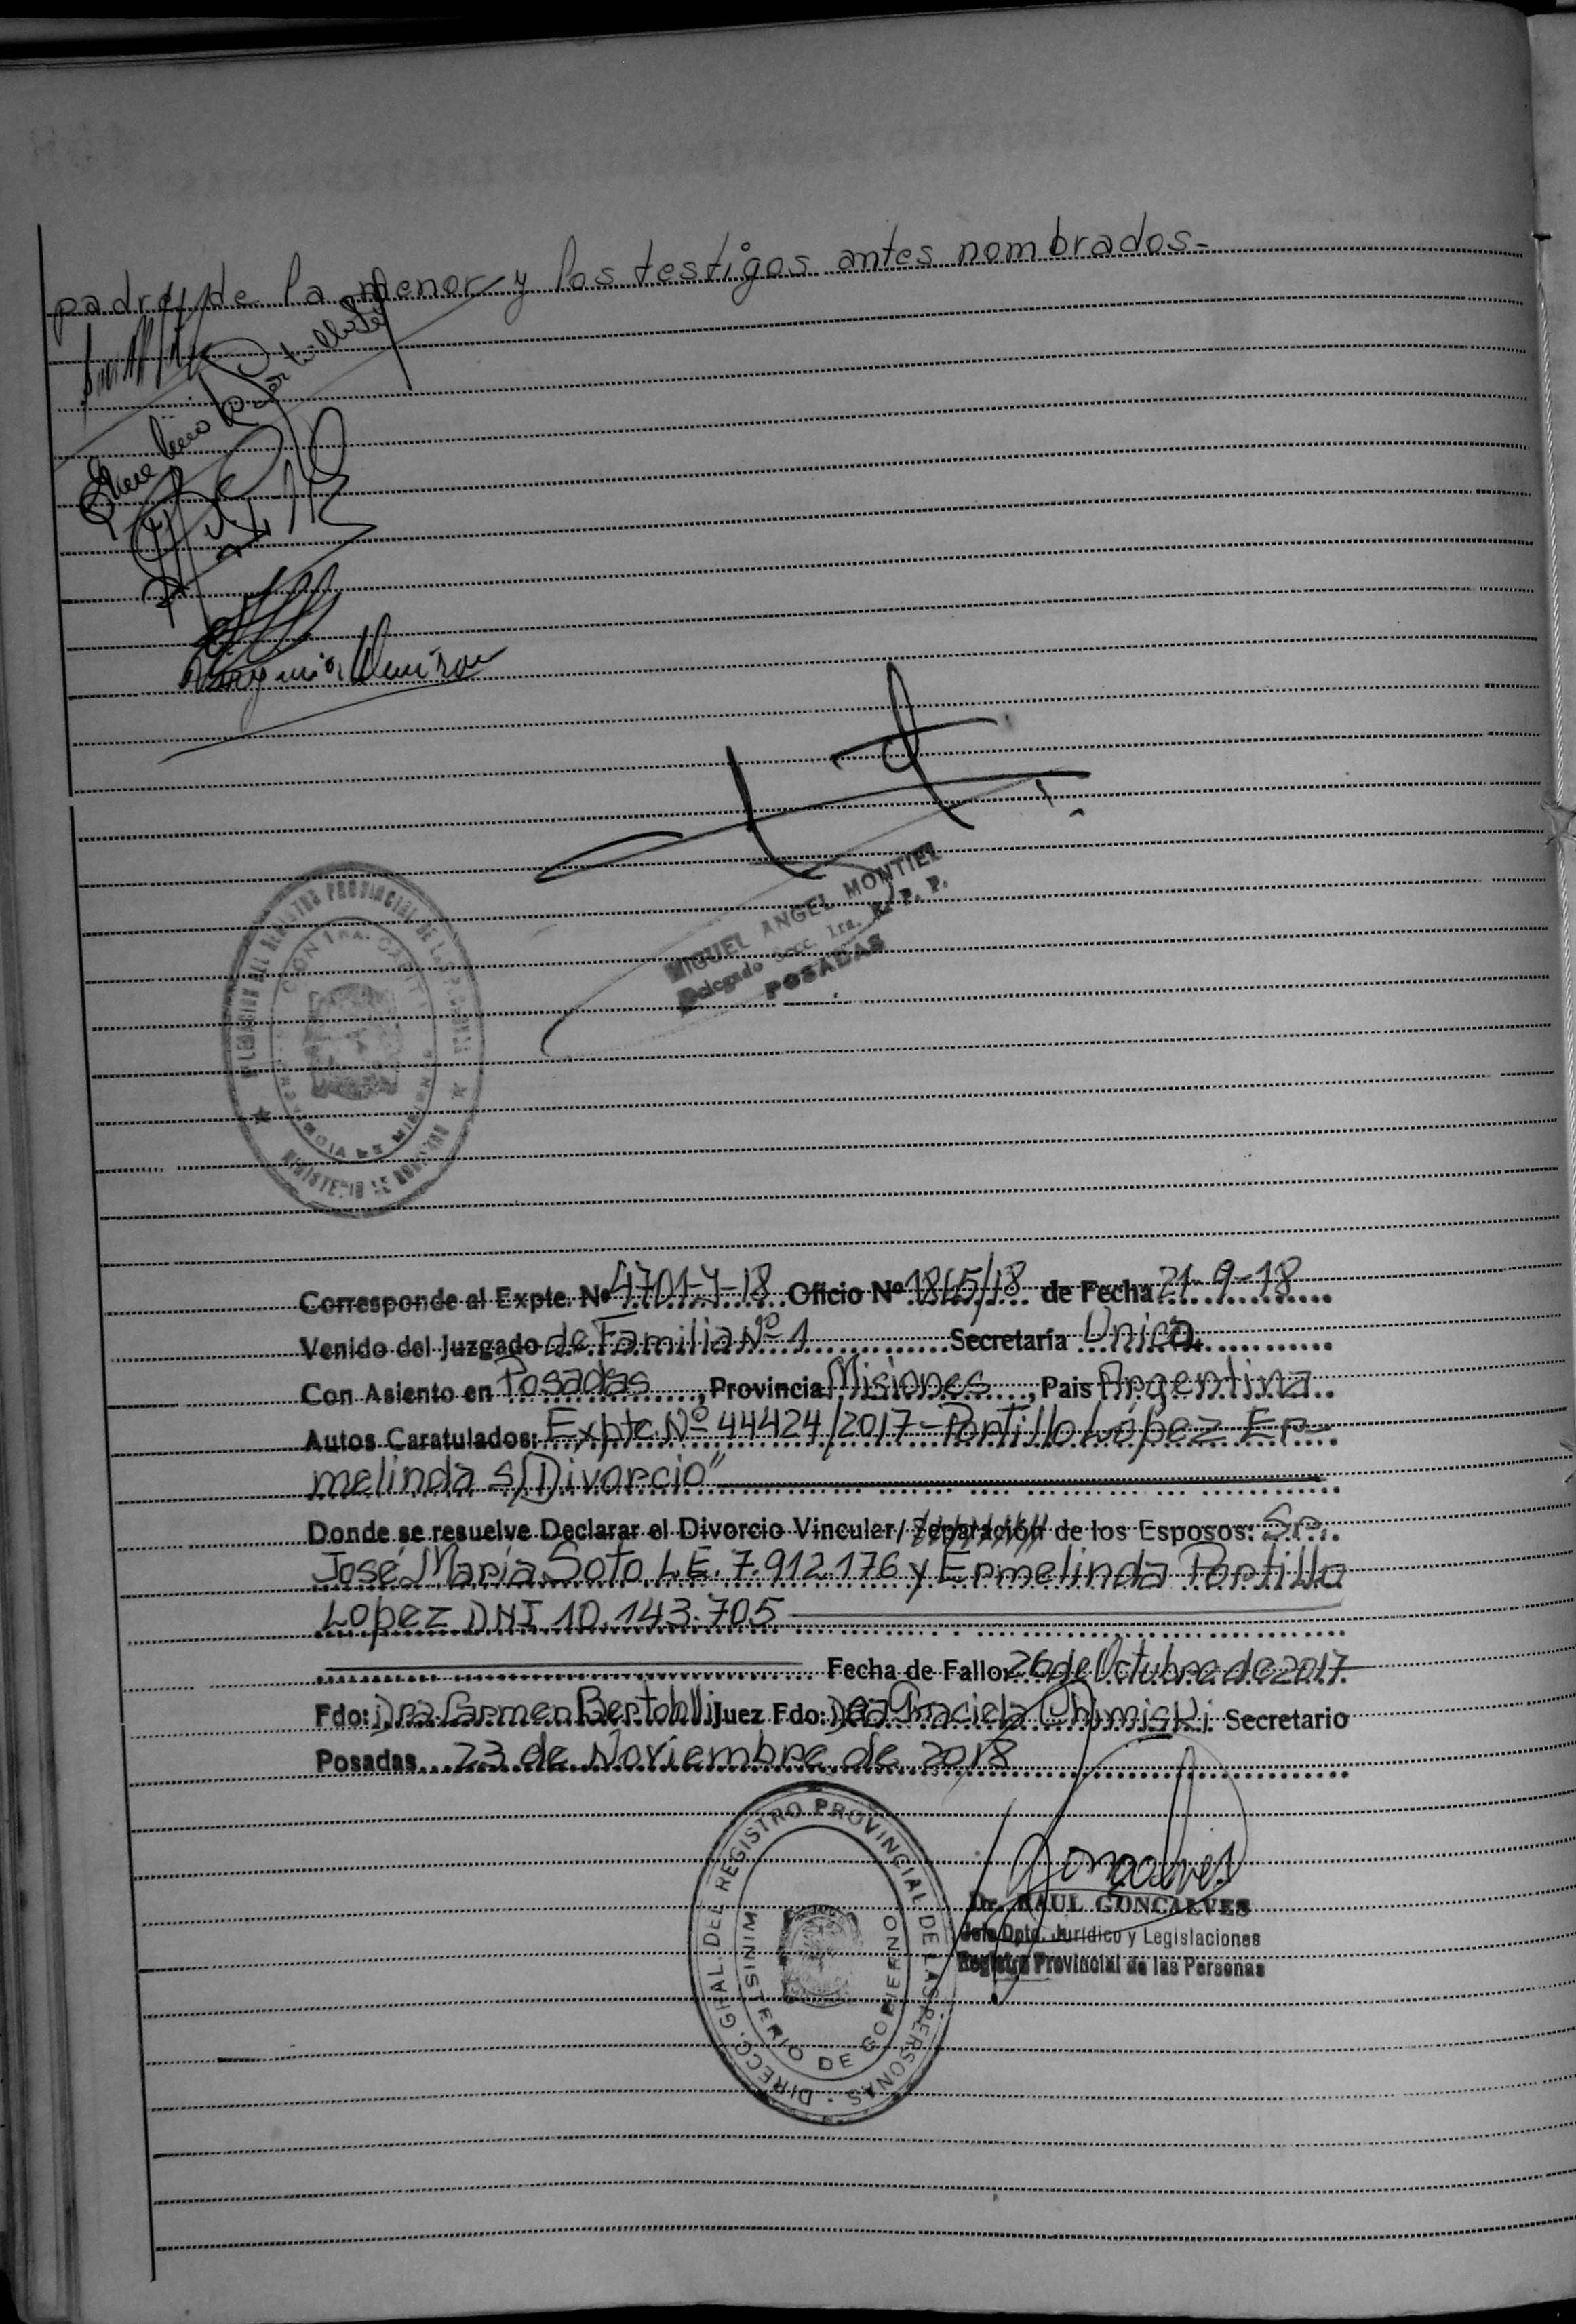 padre de la menor y los testigos antes nombrados-
MIGUEL ANGEL MONTIEL
Delegado Secc. 1ra. R. P. P.
POSADAS
DELEGACION DEL REGISTRO PROVINCIAL DE LAS PERSONAS
MINISTERIO DE GOBIERNO
Corresponde al Expte. Nº 4701-Y-18 Oficio Nº 1865/18 de Fecha 21-9-18
Venido del Juzgado de Familia Nº 1 Secretaría Unica
Con Asiento en Posadas, Provincia Misiones, Pais Argentina
Autos Caratulados: Expte. Nº 44424/2017-Portillo López Er-
melinda s/Divorcio"
Donde se resuelve Declarar el Divorcio Vincular/Separación de los Esposos: Sr.
José María Soto L.E. 7.912.176 y Ermelinda Portillo
Lopez DNI 10.143.705
Fecha de Fallo: 26 de Octubre de 2017
Fdo: Dra. Carmen Juez Fdo: Dra Graciela Secretario
Posadas 23 de Noviembre de 2018
DIRECC. GRAL. DEL REGISTRO PROVINCIAL DE LAS PERSONAS
MINISTERIO DE GOBIERNO
Goncalves
Dr. RAUL GONCALVES
Jefe Dpto. Jurídico y Legislaciones
Registro Provincial de las Personas